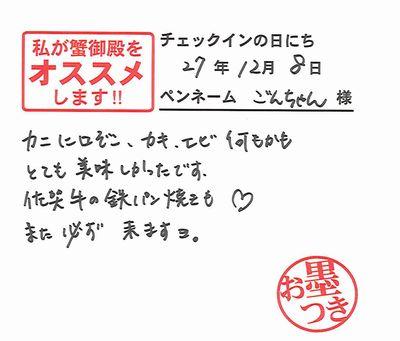 私が蟹御殿を
オススメ
します!!
チェックインの日にち
27年12月8日
ペンネーム ごんちゃん 様
カニにロぞこ、カキ、エビ 何もかも
とても美味しかったです。
佐賀牛の鉄パン焼きも♡
また必ず 来ますヨ。
お墨つき